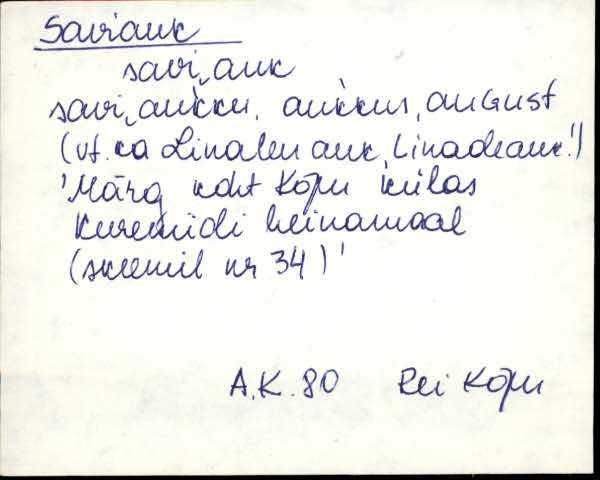 Saviauk
savi‿auk
savi‿aukku, aukkus, auGust
(vt. ka Linaleu auk, Linadeauk!)
'Märg koht Kõpu külas
Kuremidi heinamaal
(skeemil nr 34)'
A.K. 80 Rei Kõpu